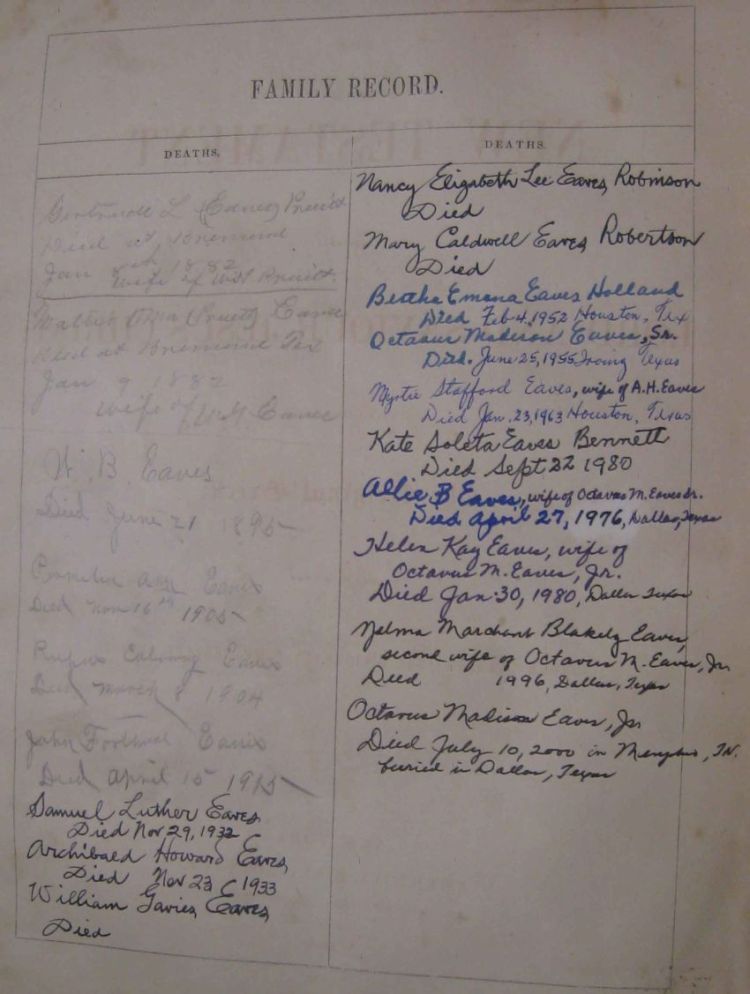 FAMILY RECORD.
DEATHS.
L (Eaves) Pruitt
Died at, Bremond
Jan 1882
Wife of W.H. Pruitt.
(Pruett) Eaves
died at Bremond Tex
Jan 9 1882
wife of Eaves
W. B. Eaves
Died June 21 1895
Cornelia Ann Eaves
Died Nov 16th 1905
Rufus Eaves
Died March 8 1904
John Eaves
Died April 15 1915
Samuel Luther Eaves
Died Nov 29, 1932
Archibald Howard Eaves,
Died Nov 23 1933
William Eaves,
Died
DEATHS.
Nancy Elizabeth Lee Eaves, Robinson
Died
Mary Caldwell Eaves, Robertson
Died
Bertha Emma Eaves Holland
Died Feb 4, 1952 Houston, Tex
Octavus Madison Eaves, Sr.
Died. June 25, 1955, Irving Texas
Myrtie Stafford Eaves, wife of A.H. Eaves
Died Jan. 23, 1963 Houston, Texas
Kate Soleta Eaves Bennett
Died Sept 22 1980
Allie B Eaves, wife of Octavus M. Eaves Sr.
Died April 27, 1976, Dallas, Texas
Helen Kay Eaves, wife of
Octavus M. Eaves, Jr.
Died Jan 30, 1980, Dallas Texas
Nelma Marchant Blakely Eaves,
second wife of Octavus M. Eaves, Jr.
Died 1996, Dallas, Texas
Octavus Madison Eaves, Jr
Died July 10, 2000 in Memphis, TN.
buried in Dallas, Texas